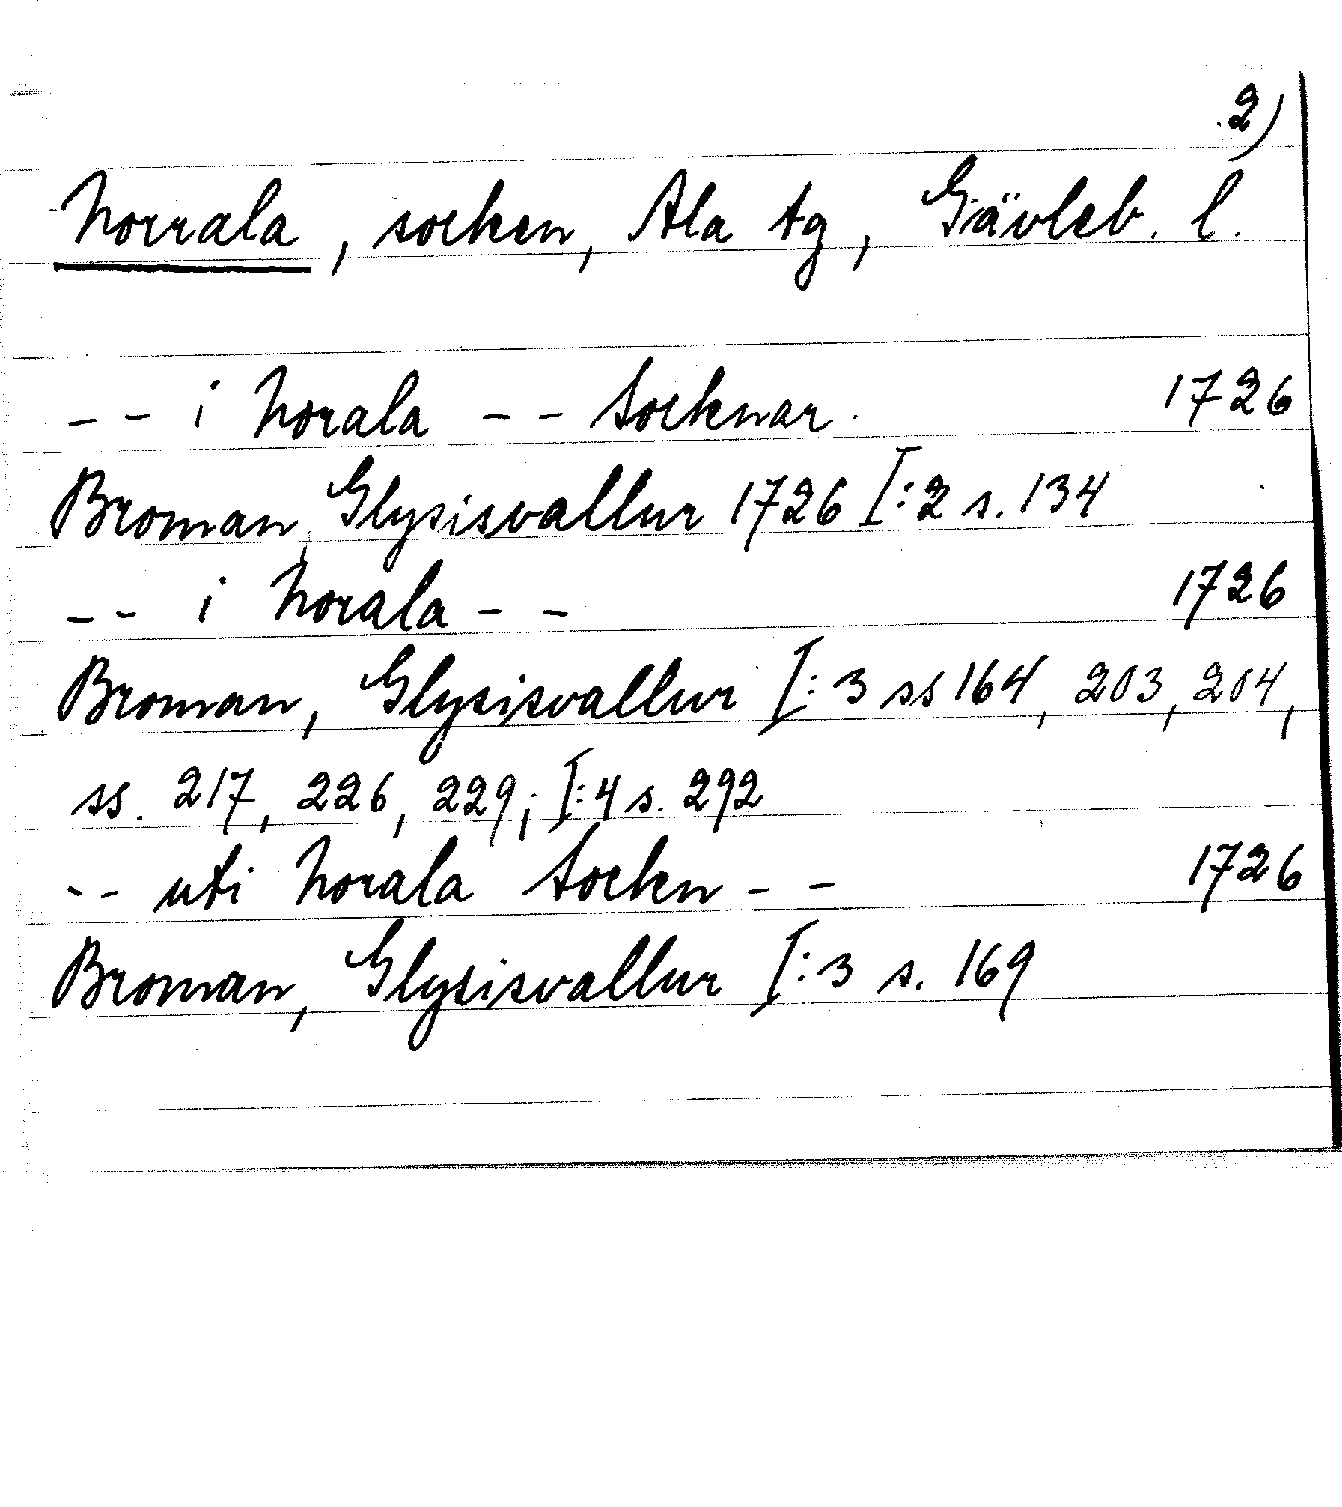 2)
Norrala, socken, Ala tg, Gävleb. l.
-- i Norala -- Socknar. 1726
Broman, Glysisvallur 1726 I:2 s. 134
-- i Norala -- 1726
Broman, Glysisvallur I:3 ss 164, 203, 204,
ss. 217, 226, 229; I:4 s. 292
-- uti Norala Sockn -- 1726
Broman, Glysisvallur I:3 s. 169